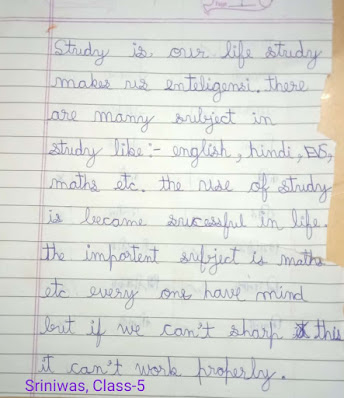 Study is our life study
makes us enteligensi. there
are many subject in
study like:- english, hindi, EVS,
maths etc. the use of study
is became sucessful in life.
the impertent subject is maths
etc every one have mind
but if we can't sharp this
it can't work properly.
Sriniwas, Class-5